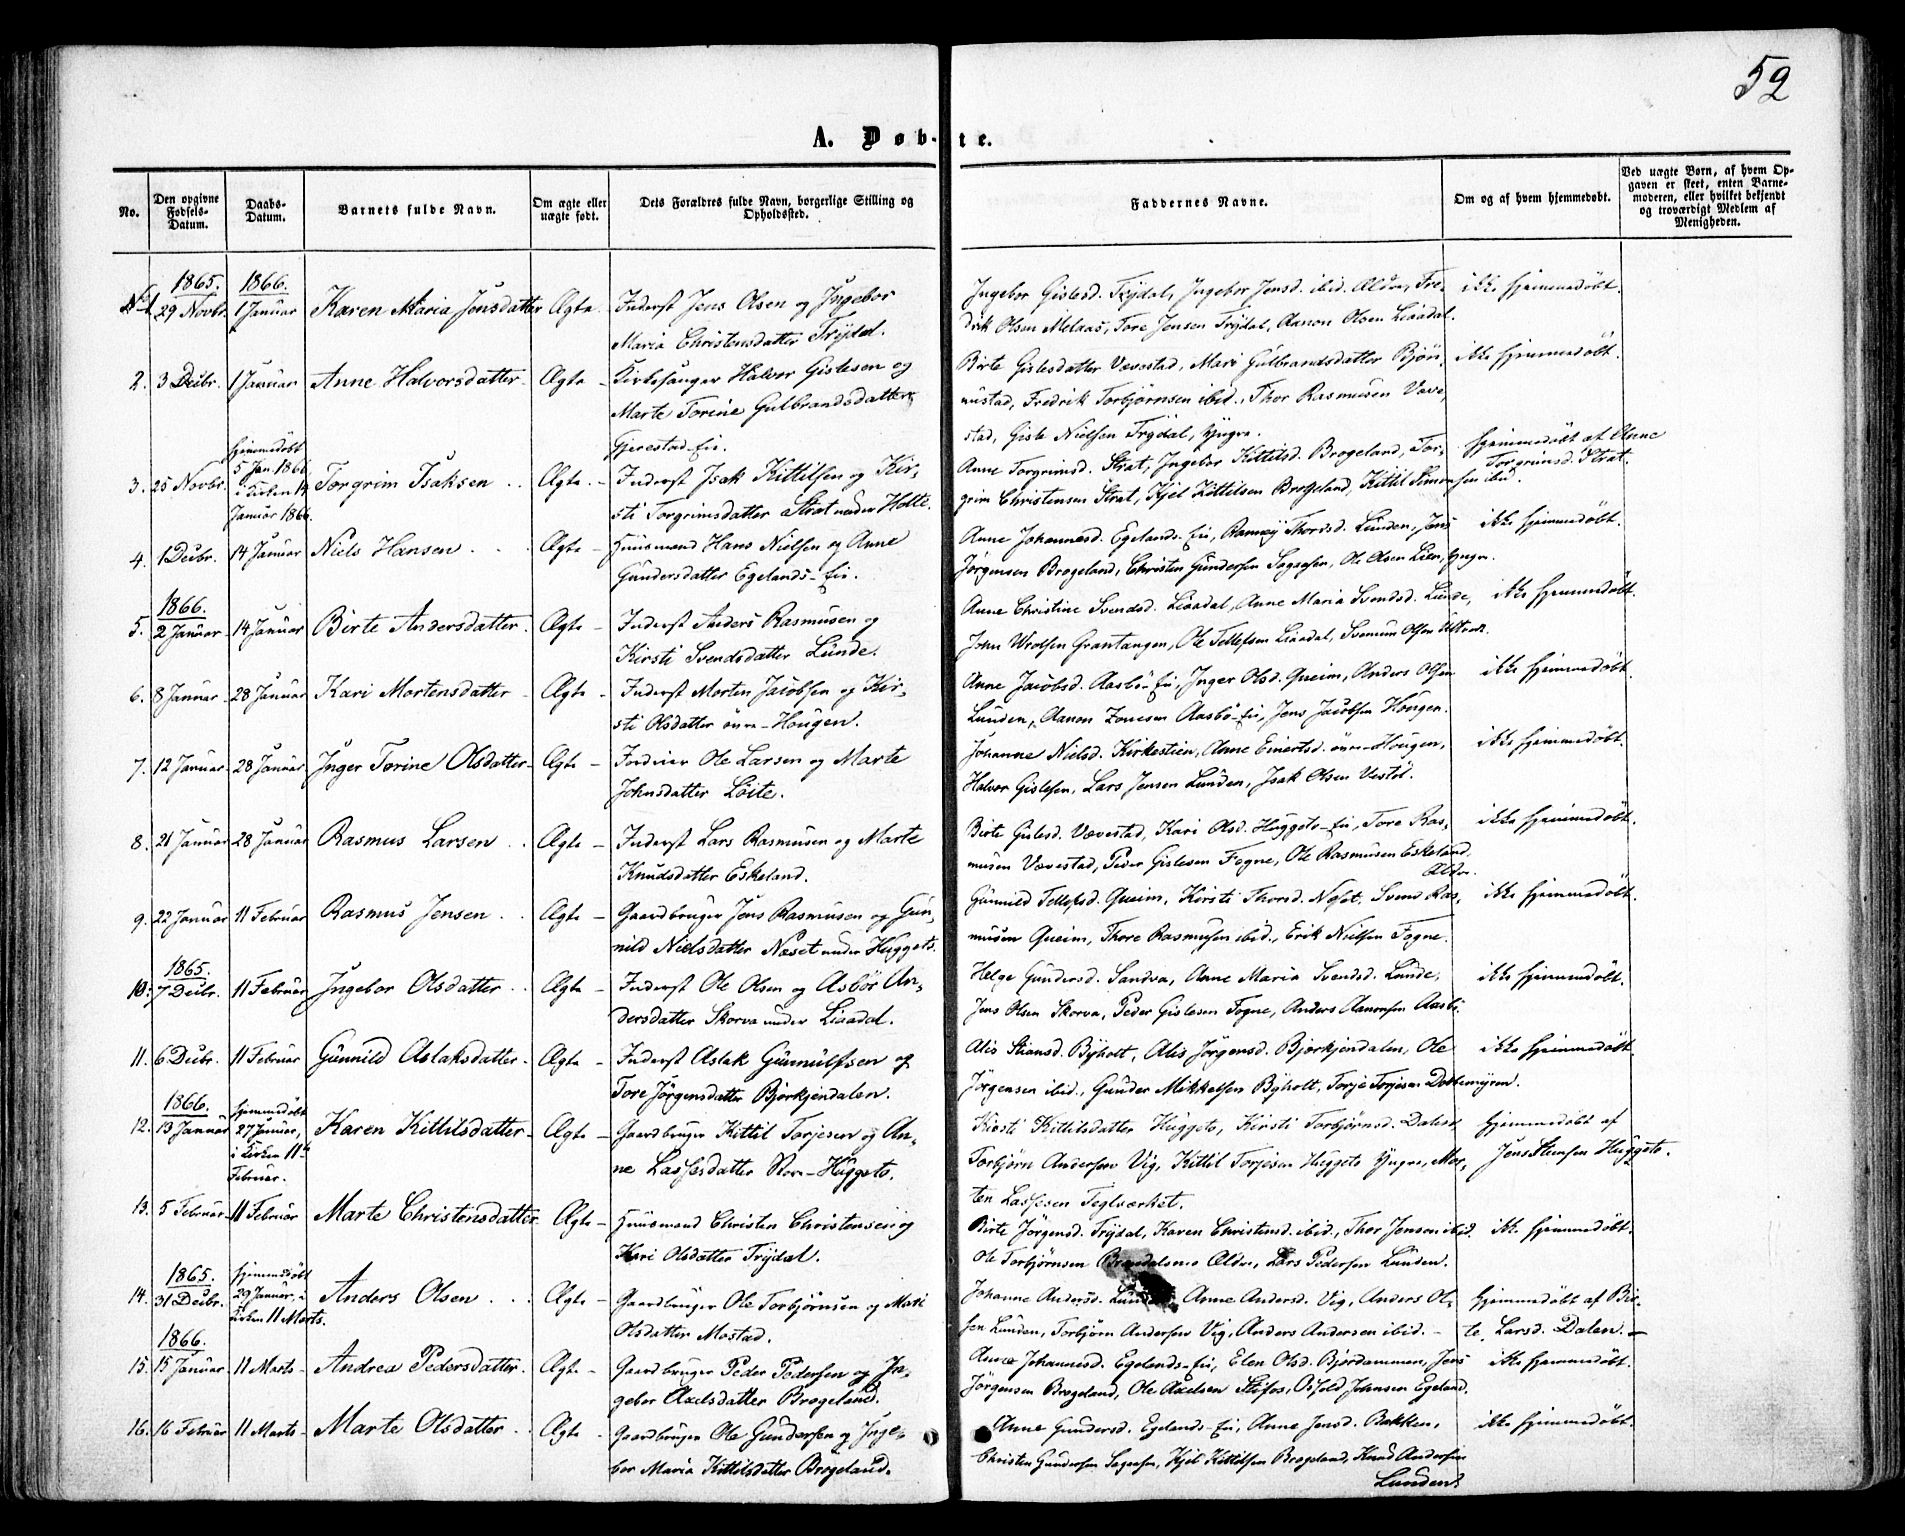 52
A. Døb-te.
No.
Den opgivne Fødsels-Datum.
Daabs-Datum.
Barnets fulde Navn.
Om ægte eller uægte født.
Dets Forældres fulde Navn, borgerlige Stilling og Opholdssted.
Faddernes Navne.
Om og af hvem hjemmedøbt.
Ved uægte Børn, af hvem Opgaven er skeet, enten Barnemoderen, eller hvilket bekjendt og troværdigt Medlem af Menigheden.
1865. 1866.
No 1. 29 Novbr. 1 Januar Karen Maria Jensdatter Ægte. Inderst Jens Olsen og Ingebor
Maria Christensdatter Trydal.
Ingebor Gislesd. Trydal, Ingebor Jensd. ibid. Ældre, Fre-
drik Olsen Melaas, Tore Jensen Trydal, Aanon Olsen Liaadal.
ikke hjemmedøbt.
2. 3 Decbr. 1 Januar Anne Halvorsdatter Ægte - Kirkesanger Halvor Gislesen og
Marte Torine Gulbrandsdatter
Gjerestad-Eie.
Birte Gislesdatter Vævestad, Mari Gulbrandsdatter Bjön-
nustad, Fredrik Torbjørnsen ibid., Thor Rasmusen Væve,
stad, Gisle Nielsen Trydal, Yngre.
ikke hjemmedøbt.
3. 25 Novbr. hjemmedøbt
5 Jan. 1866,
i Kirken 14
Januar 1866.
Torgrim Isaksen Ægte - Inderst Isak Kittilsen og Kir-
sti Torgrimsdatter Strat under Holte.
Anne Torgrimsd. Strat, Ingebor Kittilsd. Brogeland, Tor-
grim Christensen Strat, Kjel Kittilsen Brogeland, Kittil Simonsen ibid.
hjemmedøbt af Anne
Torgrimsd. Strat.
4. 1 Decbr. 14 Januar Niels Hansen Ægte - Huusmand Hans Nielsen og Anne
Gundersdatter Egelands-Eie.
Anne Johannesd. Egelands-Eie, Thorsd. Lunden, Jens
Jørgensen Brogeland, Christen Gundersen, Ole Olsen Lien, Yngre.
ikke hjemmedøbt.
1866.
5. 2 Januar 14 Januar Birte Andersdatter. Ægte - Inderst Anders Rasmusen og
Kirsti Svendsdatter Lunde.
Anne Christine Svendsd. Liaadal, Anne Maria Svendsd. Lunde,
John Grantangen, Ole Tellefsen Liaadal, Olsen
ikke hjemmedøbt.
6. 8 Januar 28 Januar Kari Mortensdatter Ægte - Inderst Morten Jacobsen og Kir-
sti Olsdatter övre-Hougen.
Anne Jacobsd. Aasbö-Eie, Inger Olsd. Queim, Anders Olsen
Lunden, Aanon Aasbö-Eie, Jens Jacobsen Hougen.
ikke hjemmedøbt.
7. 12 Januar 28 Januar Inger Torine Olsdatter Ægte - Ole Larsen og Marte
Johnsdatter Löite.
Johanne Nielsd. Kirkestien, Anne Einertsd. övre-Hougen,
Halvor Gislesen, Lars Jensen Lunden, Isak Olsen Vestöl.
ikke hjemmedøbt.
8. 21 Januar 28 Januar Rasmus Larsen Ægte - Inderst Lars Rasmusen og Marte
Knudsdatter Eskeland.
Birte Gislesd. Vævestad, Kari Olsd. Huggets-Eie, Tore Ras-
musen Vævestad, Peder Gislesen Fogne, Ole Rasmusen Eskeland,
Ældre.
ikke hjemmedøbt.
9. 22 Januar 11 Februar Rasmus Jensen Ægte - Gaardbruger Jens Rasmusen og Gun-
nild Nielsdatter Næset under Huggets.
Gunnild Tellefsd. Queim, Kirsti Thorsd. Næset, Svend Ras,
musen Queim, Thore Rasmusen ibid., Erik Nielsen Fogne.
ikke hjemmedøbt.
1865.
10. 7 Decbr. 11 Februar Ingebor Olsdatter Ægte - Inderst Ole Olsen og Asbör An-
dersdatter Skorva under Liaadal.
Helge Gundersd. Sandva, Anne Maria Svendsd. Lunde,
Jens Olsen Skorva, Peder Gislesen Fogne, Anders Aanonsen Aasbö.
ikke hjemmedøbt.
11. 6 Decbr. 11 Februar Gunnild Aslaksdatter Ægte - Inderst Aslak Gunnulfsen og
Tore Jørgensdatter Bjørkjendalen.
Alis Byholt, Alis Jørgensd. Bjørkjendalen, Ole
Jørgensen ibid., Gunder Mikkelsen Byholt, Torje Torjesen Dobbemyren.
ikke hjemmedøbt.
1866.
12. 13 Januar hjemmedøbt
27 Januar,
i Kirken 11te
Februar.
Karen Kittilsdatter Ægte - Gaardbruger Kittil Torjesen og An-
ne Lassesdatter Store-Huggets.
Kirsti Kittilsdatter Huggets, Kirsti Torbjørnsd. Dalen
Torbjørn Andersen Vig, Kittil Torjesen Huggets Yngre, Mor,
ten Lassesen Teglværket.
hjemmedøbt af
Jens Huggets.
13. 5 Februar 11 Februar Marte Christensdatter Ægte - Huusmand Christen Christensen og
Kari Olsdatter Trydal.
Birte Jörgensd. Trydal, Karen Christensd. ibid., Thor Jensen ibid.
Ole Torbjørnsen Ældre, Lars Pedersen Lunden.
ikke hjemmedøbt.
1865.
14. 31 Decbr. hjemmedøbt
29 Januar, i
Kirken 11 Marts.
Anders Olsen Ægte - Gaardbruger Ole Torbjørnsen og Mari
Olsdatter Mostad.
Johanne Andersd. Anne Andersd. Vig, Anders Ol-
sen Lunden, Torbjørn Andersen Vig, Anders Andersen ibid. -
hjemmedøbt af Bir-
te Larsd. Dalen. -
1866.
15. 15 Januar 11 Marts Andrea Pedersdatter. Ægte - Gaardbruger Peder Pedersen og In-
gebor Axelsdatter Brogeland.
Anne Johannesd. Egelands-Eie, Elen Olsd. Bjørdammen, Jens
Jörgensen Brogeland, Ole Axelsen Stifos, Johnsen Egeland.
ikke hjemmedøbt.
16. 16 Februar 11 Marts - Marte Olsdatter Ægte - Gaardbruger Ole Gundersen og Inge-
bor Maria Kittilsdatter Brogeland.
Anne Gundersd. Egelands-Eie, Anne Jensd. Bakken,
Christen Gundersen, Kjel Kittilsen Brogeland, Knud Andersen
Lunden.
ikke hjemmedøbt.